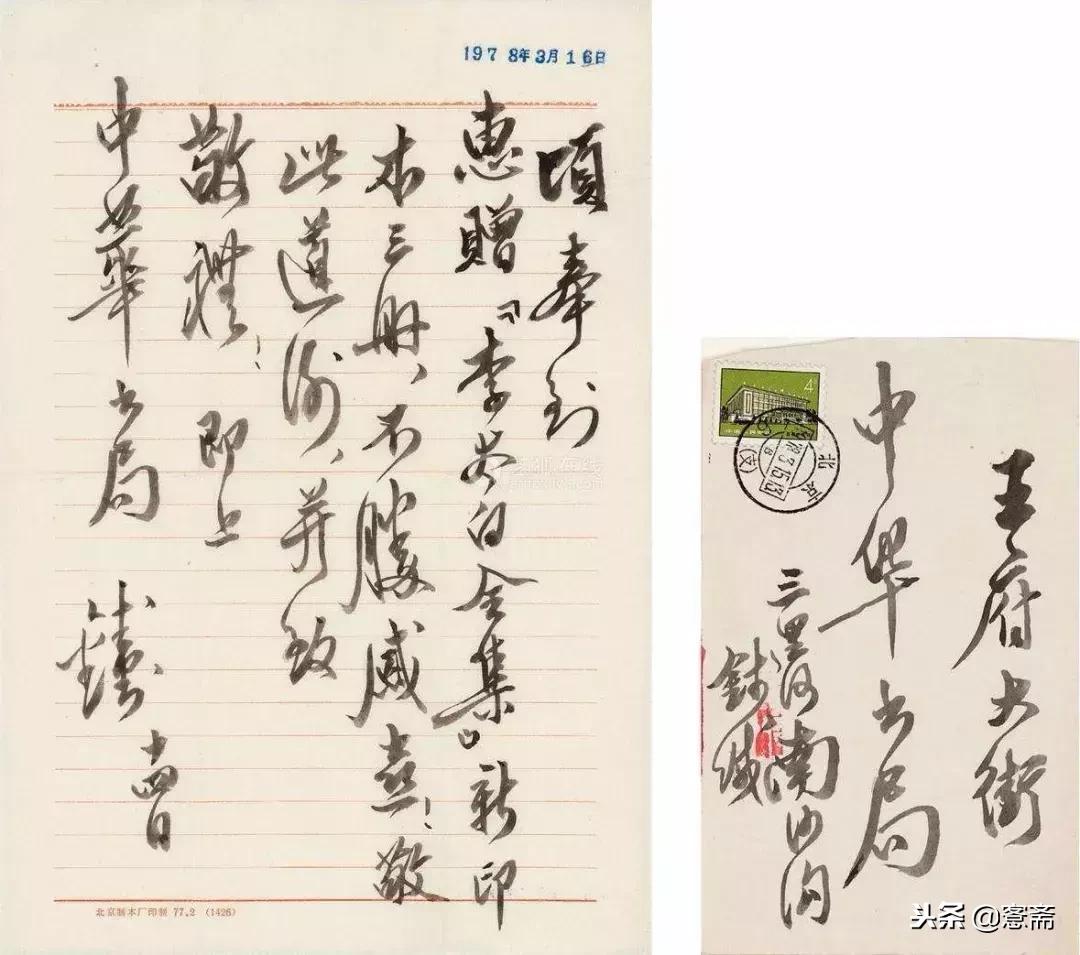 1978年3月16日
頃奉到
惠贈『李太白全集』新印
本三册、不勝感喜！敬
此道谢、并致
敬禮！即上
中華书局
十四日
北京制本厂印制 77.2 (1426)
4
北京
78.3.15.13
王府大街
中华书局
三里河南沙沟
錢缄
头条@愙斋